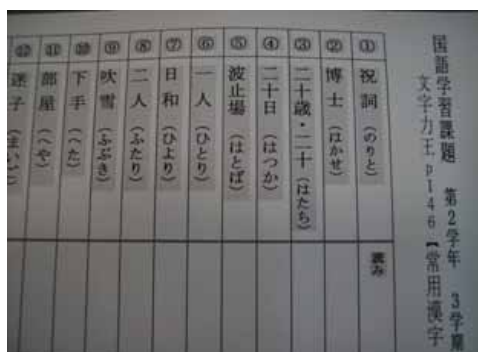 国語学習課題 第2学年 3学期
文字力王 P146【常用漢字
読み
① 祝詞(のりと)
② 博士(はかせ)
③ 二十歳・二十(はたち)
④ 二十日(はつか)
⑤ 波止場(はとば)
⑥ 一人(ひとり)
⑦ 日和(ひより)
⑧ 二人(ふたり)
⑨ 吹雪(ふぶき)
⑩ 下手(へた)
⑪ 部屋(へや)
⑫ 迷子(まいご)